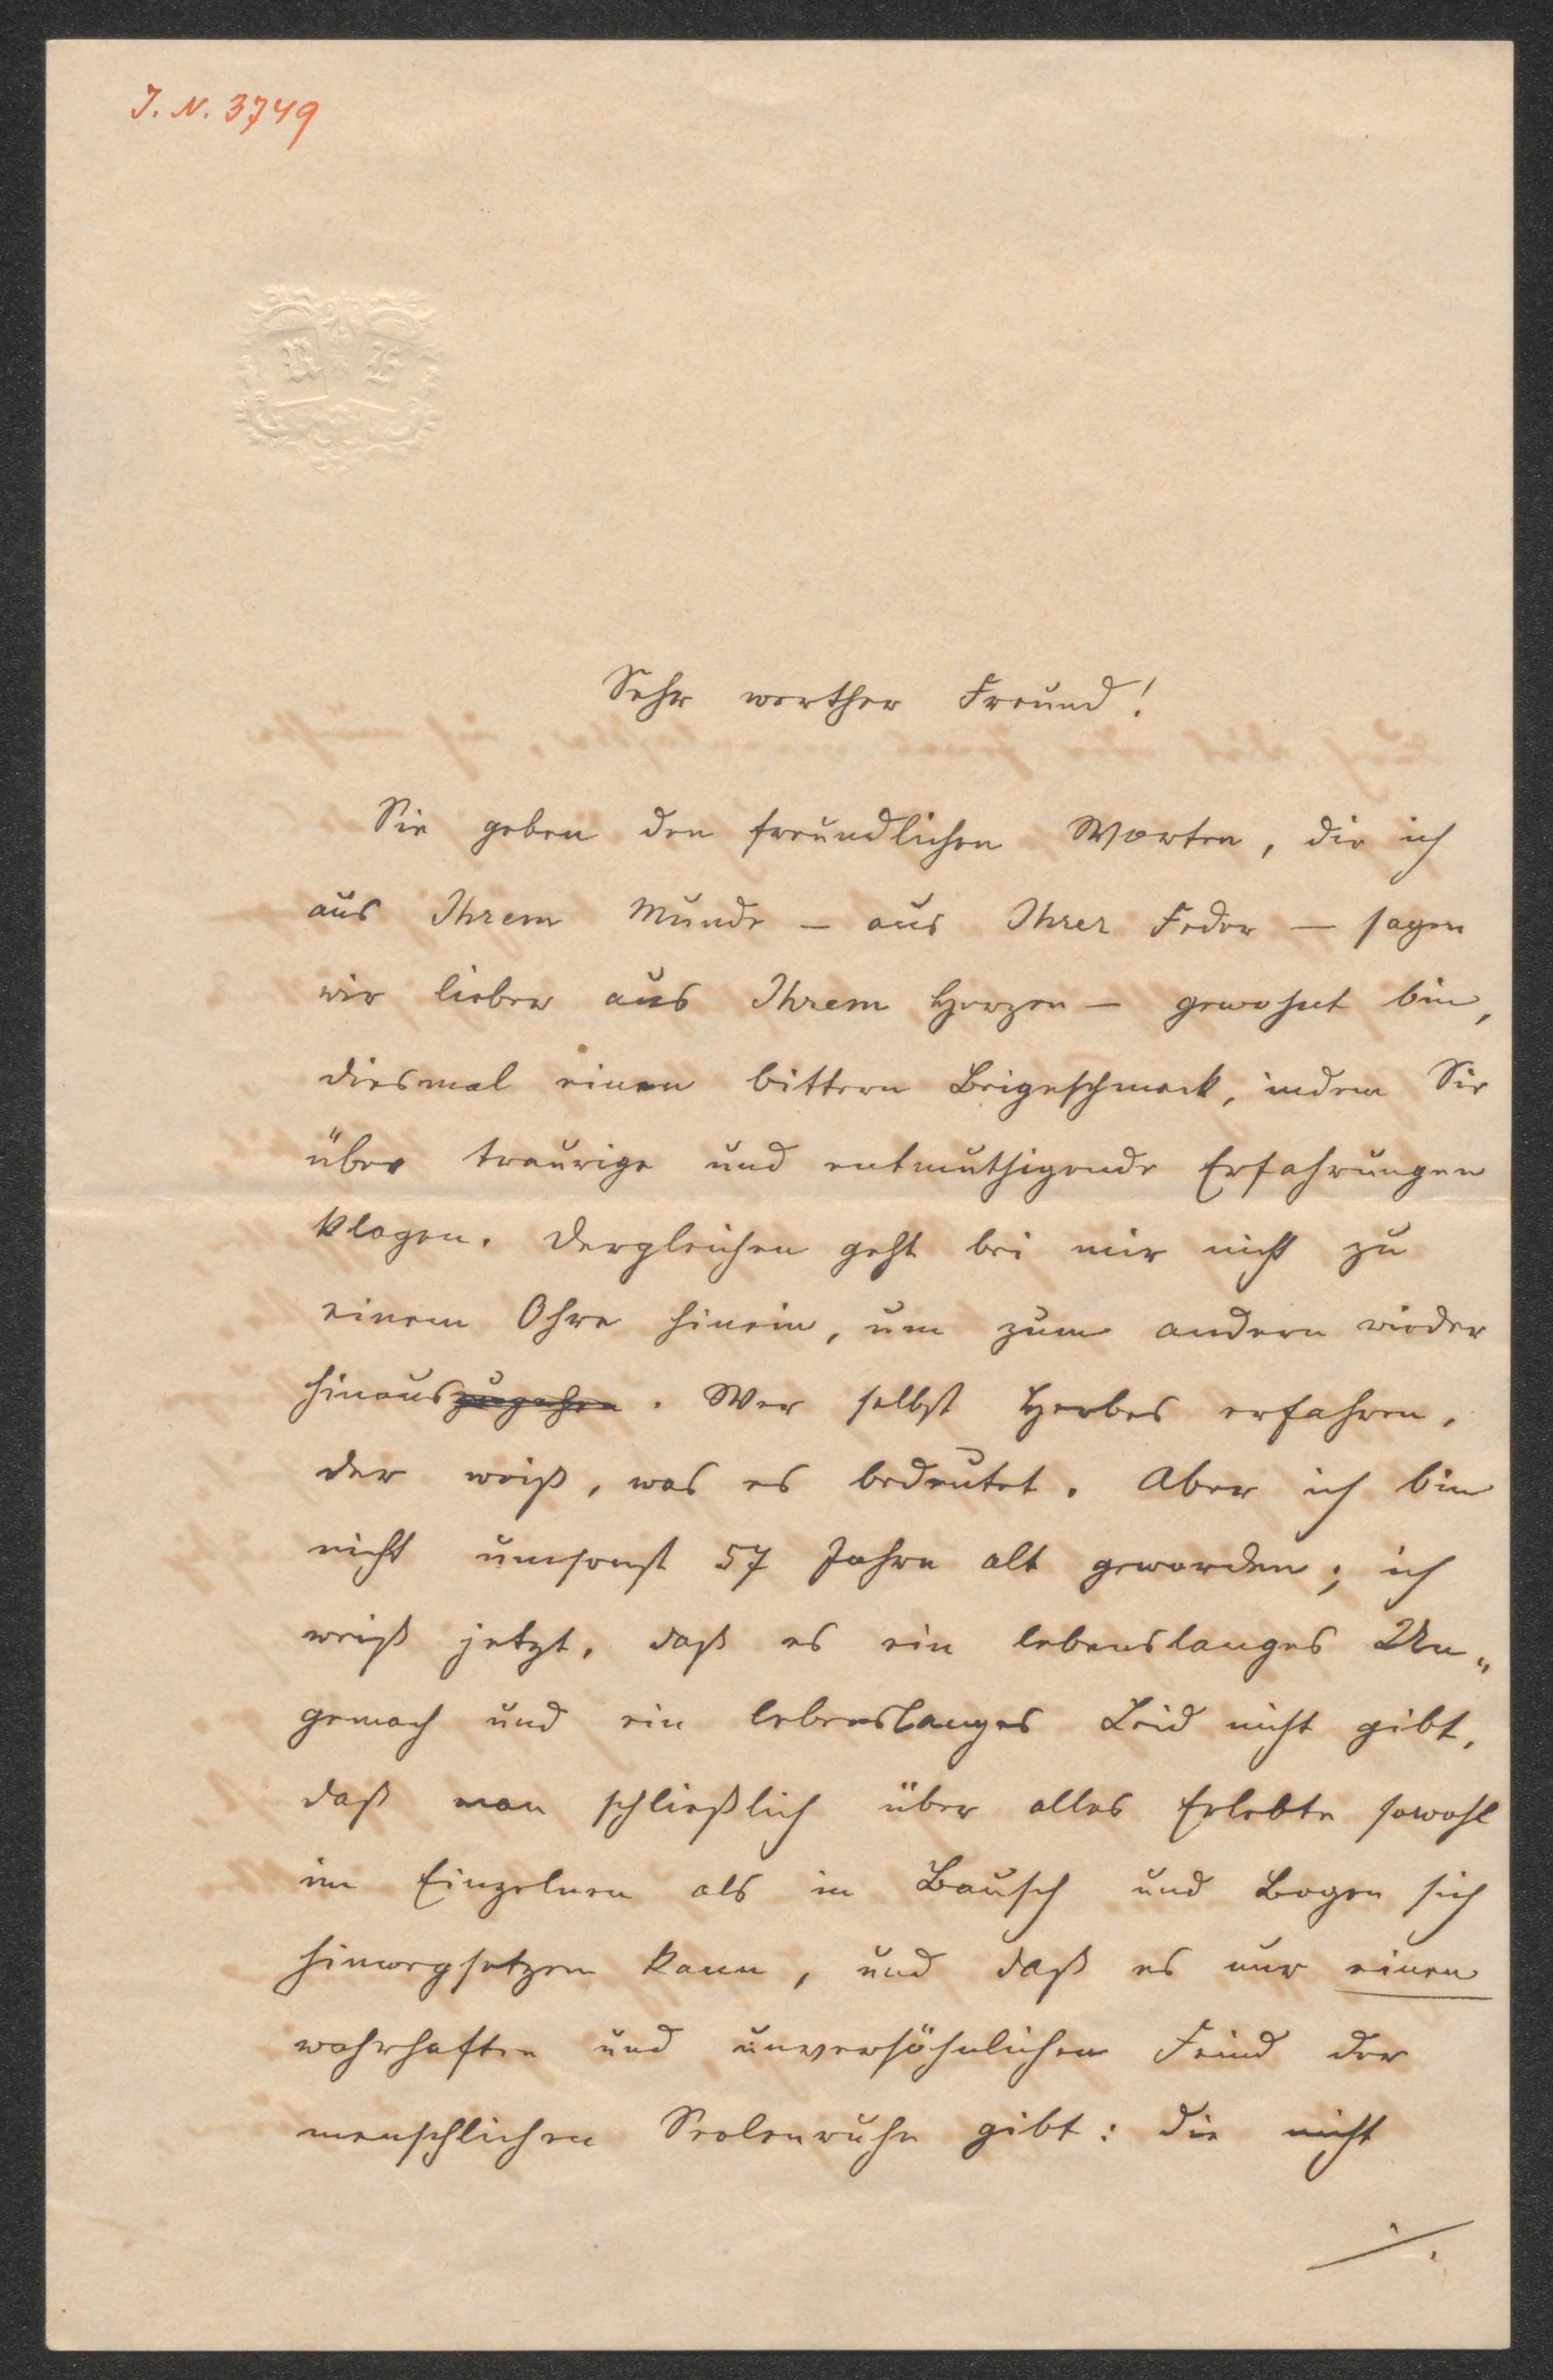 J. N. 3749
R E
Sehr werther Freund!
Sie geben den freundlichen Worten, die ich
aus Ihrem Munde – aus Ihrer Feder – sagen
wir lieber aus Ihrem Herzen – gewohnt bin,
diesmal einen bittern Beigeschmack, indem Sie
über traurige und entmuthigende Erfahrungen
klagen. Dergleichen geht bei mir nicht zu
einem Ohre hinein, um zum andern wieder
hinauszugehen. Wer selbst Herbes erfahren,
der weiß, was es bedeutet. Aber ich bin
nicht umsonst 57 Jahre alt geworden; ich
weiß jetzt, daß es ein lebenslanges Un„
gemach und ein lebenslanges Leid nicht gibt,
daß man schließlich über alles Erlebte sowohl
im Einzelnen als in Bausch und Bogen sich
hinwegsetzen kann, und daß es nur einen
wahrhaften und unversöhnlichen Feind der
menschlichen Seelenruhe gibt: die nicht
./.